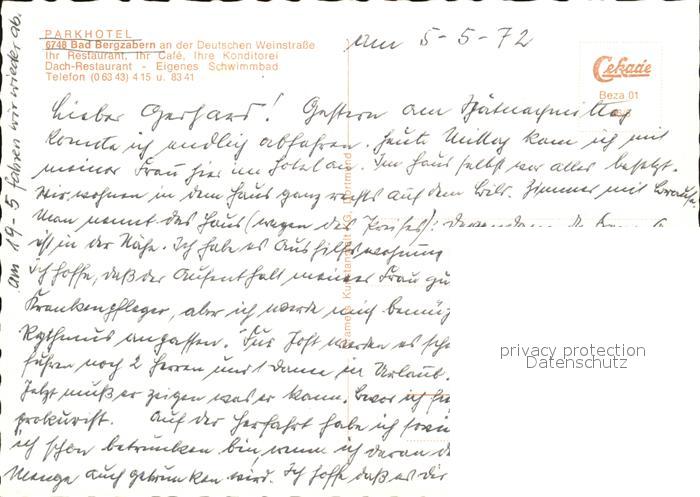 PARKHOTEL
6748 Bad Bergzabern an der Deutschen Weinstraße
Ihr Restaurant, Ihr Café, Ihre Konditorei
Dach-Restaurant - Eigenes Schwimmbad
Telefon (0 63 43) 4 15 u. 83 41
am 5-5-72
Cekade
Beza 01
Lieber Gerhard! Gestern am Spätnachmittag
konnte ich endlich abfahren. Heute Mittag kam ich mit
meiner Frau hier im Hotel an. Im Haus selbst war alles besetzt.
Wir wohnen in dem Haus ganz rechts auf dem Bild. Zimmer mit Brause.
Man nennt das Haus (wegen des
ist in der Nähe. Ich habe es Aushilfswohnung
Ich hoffe, daß der Aufenthalt meiner Frau gu
Krankenpfleger, aber ich werde mich bemüh
Rythmus anpassen. Für Jost werden es
fahren noch 2 Herren und 1 Dame in Urlaub.
Jetzt muß er zeigen was er kann. Bevor ich
prokurist. Auf der Herfahrt habe ich
ich schon betrunken bin, wenn ich daran d
Menge auch getrunken wird. Ich hoffe daß es dir
am 19-5 fahren wir wieder ab.
privacy protection
Datenschutz